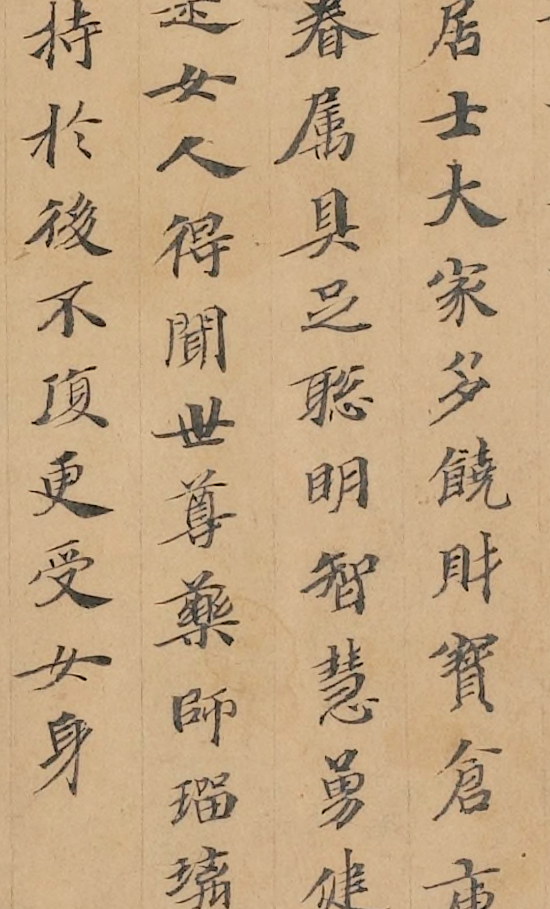 居士大家多饒財寶倉庫
眷属具足聡明智慧勇健
是女人得聞世尊藥師瑠璃
持於後不湏更受女身